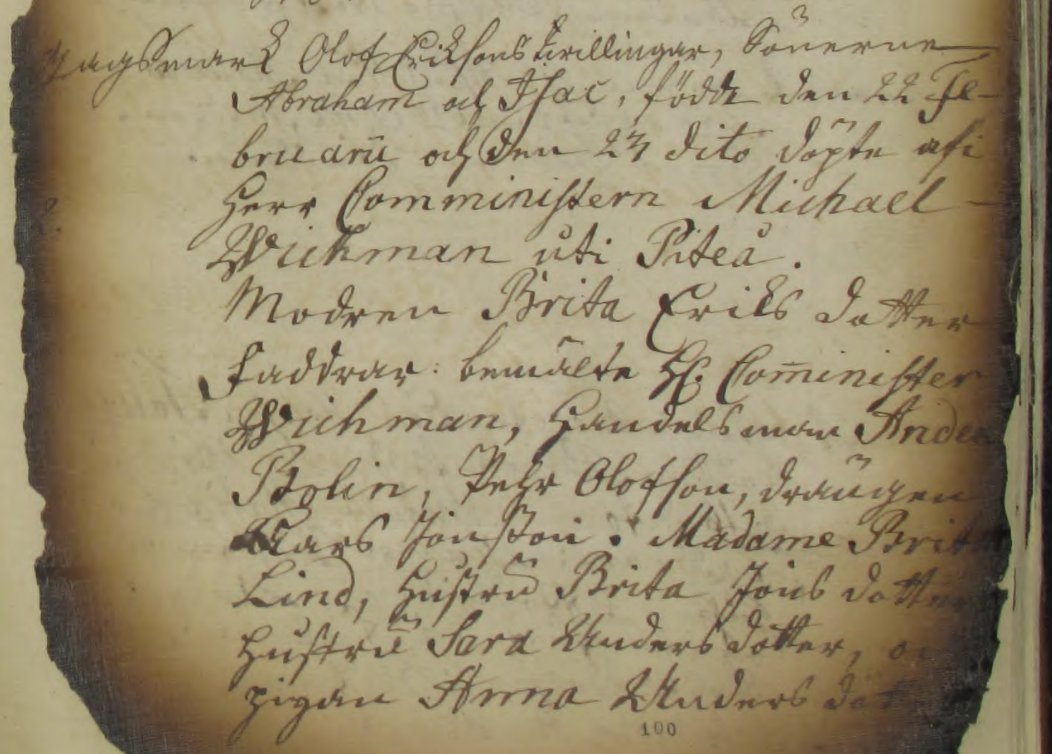 Olof Erikssons twillingar, Sönerne
Abraham och Isac, född den 22 Fe-
bruarii och den 23 dito döpte af
Herr Comministern Michael
Wichman uti Piteå.
Modren Brita Eriks dotter
Faddrar: bemälte H. Cominister
Wichman, Handelsman Anders
Bolin, Pehr Olofson, drängen
Lars Jonsson. Madame Brita
Lind, Hustru Brita Jöns dotter
Hustru Sara Anders dotter,
pigan Anna Anders
100